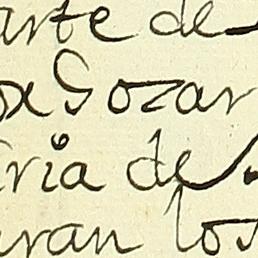 arte de
Gozar
ria de
ran los